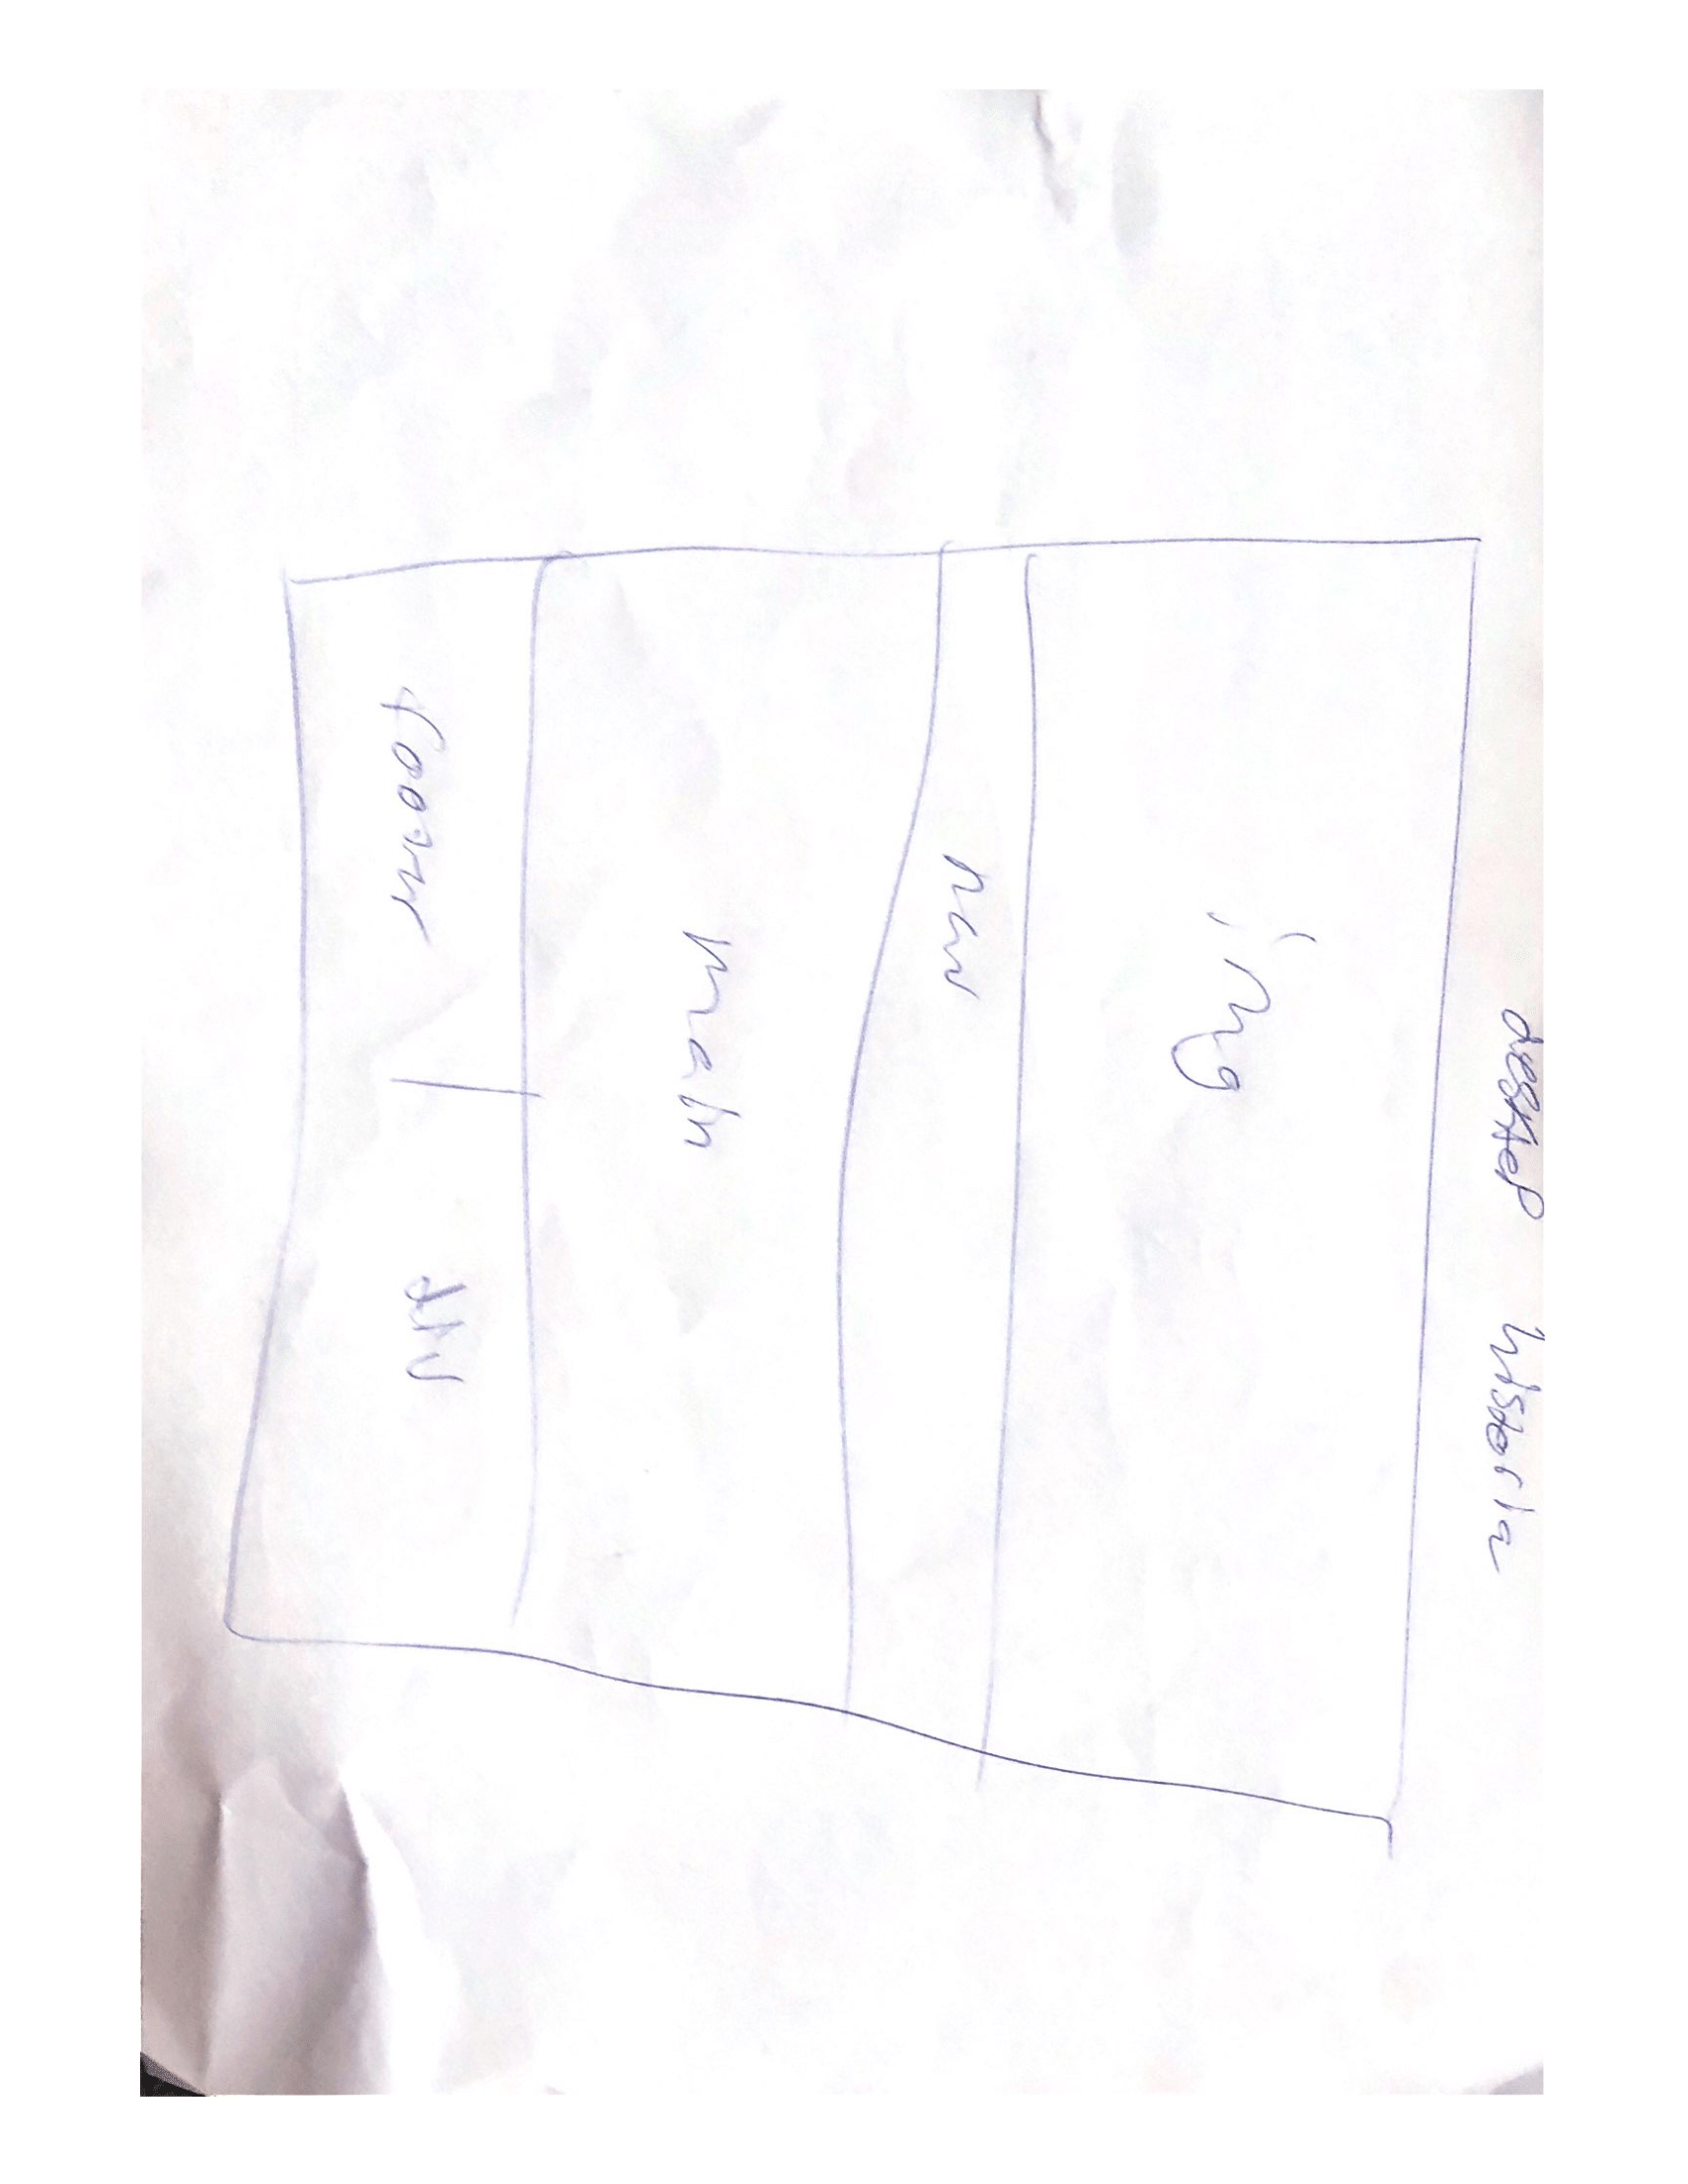 desktop historia
img
nav
main
footer div